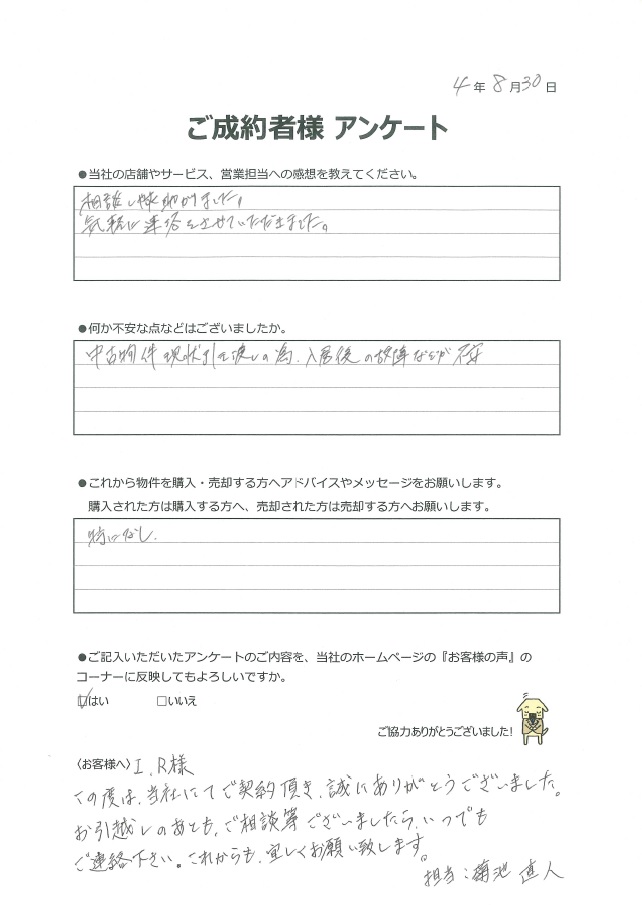 4年8月30日
ご成約者様 アンケート
●当社の店舗やサービス、営業担当への感想を教えてください。
相談しや助かりました。
気軽に連絡をさせていただきました。
●何か不安な点などはございましたか。
中古物件現状引き渡しの為、入居後の故障などが不安
●これから物件を購入・売却する方へアドバイスやメッセージをお願いします。
購入された方は購入する方へ、売却された方は売却する方へお願いします。
特になし.
●ご記入いただいたアンケートのご内容を、当社のホームページの『お客様の声』の
コーナーに反映してもよろしいですか。
☑はい □いいえ
ご協力ありがとうございました!
〈お客様へ〉I.R様
この度は、当社にてご契約頂き、誠にありがとうございました。
お引越しのあとも、ご相談等ございましたら、いつでも
ご連絡下さい。これからも、宜しくお願い致します。
担当:菊池 直人